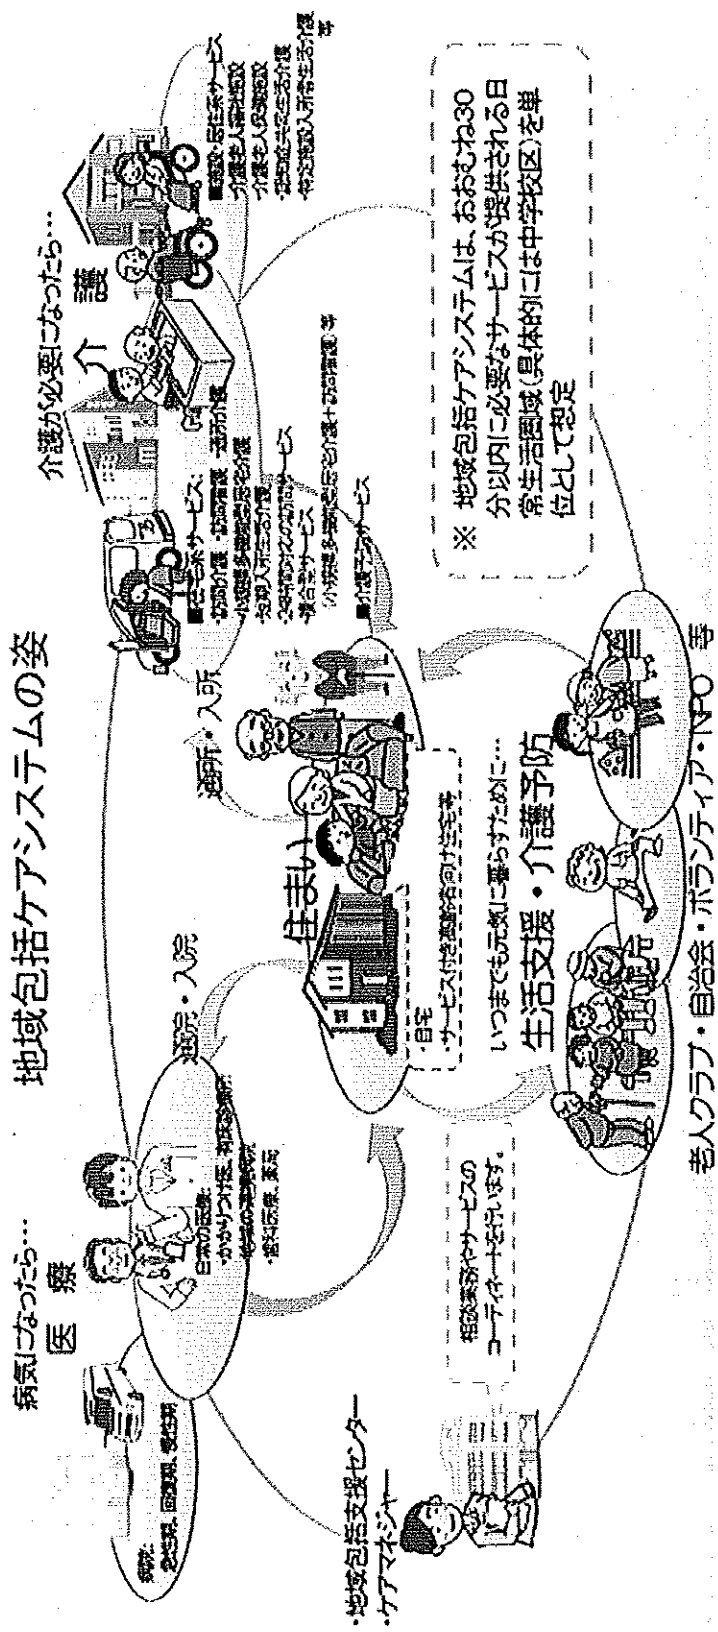 地域包括ケアシステムの姿
病気になったら…
医 療
病院:
急性期、回復期、慢性期
日常の医療:
・かかりつけ医、有床診療所
地域の連携病院
・歯科医療、薬局
通院・入院
通所・入所
介護が必要になったら…
介 護
■在宅系サービス:
・訪問介護 ・訪問看護 ・通所介護
・小規模多機能型居宅介護
・短期入所生活介護
・24時間対応の訪問サービス
・複合型サービス
(小規模多機能型居宅介護+訪問看護) 等
■介護予防サービス
■施設・居住系サービス
・介護老人福祉施設
・介護老人保健施設
・認知症共同生活介護
・特定施設入所者生活介護
等
住まい
・自宅
・サービス付き高齢者向け住宅等
・地域包括支援センター
・ケアマネジャー
相談業務やサービスの
コーディネートを行います。
いつまでも元気に暮らすために…
生活支援・介護予防
老人クラブ・自治会・ボランティア・NPO 等
※ 地域包括ケアシステムは、おおむね30
分以内に必要なサービスが提供される日
常生活圏域(具体的には中学校区)を単
位として想定